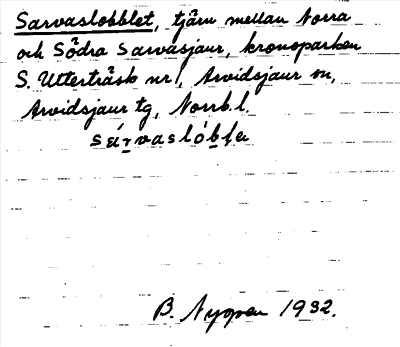 Sarvaslobblet, tjärn mellan Norra
och Södra Sarvasjaur, kronoparken
S. Utterträsk nr 1, Arvidsjaur sn,
Arvidsjaur tg, Norrb. l.
B. Nygren 1932.